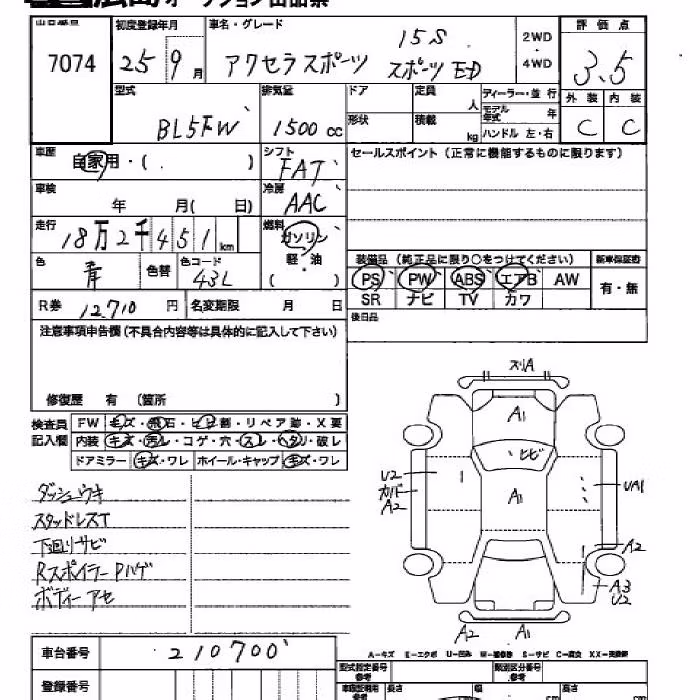 オークション出品票
出品番号 初度登録年月 車名・グレード 15S 2WD・4WD 評価点
7074 25 9月 アクセラスポーツ スポーツED 3.5
外装 内装
C C
型式 排気量 ドア 定員 人 ディーラー・並行
BL5FW 1500cc 形状 積載 kg モデル年式 年
ハンドル 左・右
車歴 自家用・( . ) シフト FAT セールスポイント (正常に機能するものに限ります)
車検 年 月( 日) 冷房 AAC
走行 18万2千451km 燃料 ガソリン・軽・油 ( )
色 青 色替 色コード 43L
装備品 (純正品に限り○をつけてください) 新車保証書
PS PW ABS エアB AW 有・無
SR ナビ TV カワ
R券 12,710円 名変期限 月 日 後日品
注意事項申告欄(不具合内容等は具体的に記入して下さい)
修復歴 有 (箇所 )
検査員記入欄 FW キズ・飛石・ヒビ割・リペア跡・X要
内装 キズ・汚レ・コゲ・穴・スレ・ヘタリ・破レ
ドアミラー キズ・ワレ ホイール・キャップ キズ・ワレ
スリA
A1
ヒビ
U2
カバド
A2
A1
UA1
A2
A3
U2
A2 A1
ダッシュウキ
スタッドレスT
下廻リサビ
RスポイラーPハゲ
ボディーアセ
A-キズ E-エクボ U-凹み W-補修跡 S-サビ C-腐食 XX-交換済
車台番号 210700
登録番号
型式指定番号 参考 類別区分番号 参考
長さ 幅 高さ